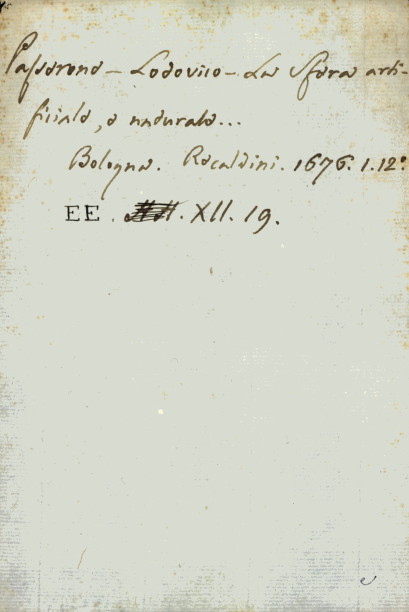 Passerone - Lodovico - La Sfera arti-
ficiale, e naturale...
Bologna. Recaldini. 1676. 1. 12°
EE. . XII. 19.